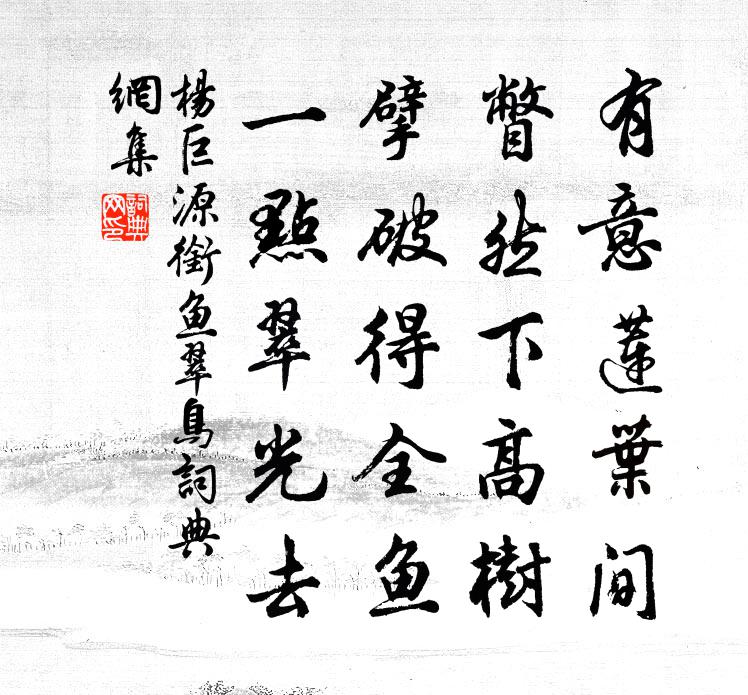 有意莲葉间
瞥然下高樹
擘破得全魚
一點翠光去
楊巨源銜魚翠鳥詞典
網集
詞典
网印